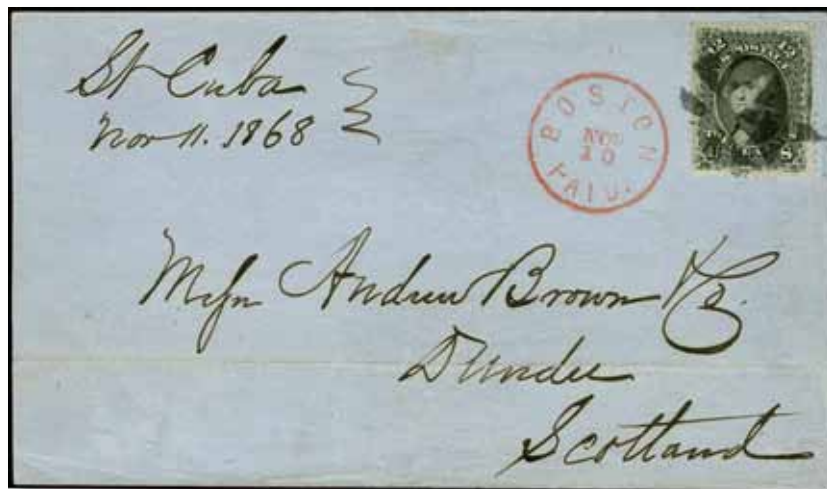 St Cuba
Nov 11. 1868
BOSTON
NOV
10
PAID.
12 12
U.S. POSTAGE
Messrs Andrew Brown & Co.
Dundee
Scotland